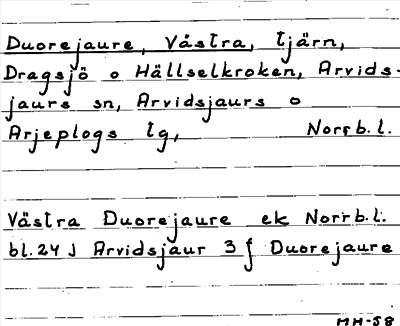 Duorejaure, Västra, tjärn,
Dragsjö o Hällselkroken, Arvids-
jaurs sn, Arvidsjaurs o
Arjeplogs tg, Norrb.l.
Västra Duorejaure ek Norrb.l.
bl.24 J Arvidsjaur 3 f Duorejaure
MH-58